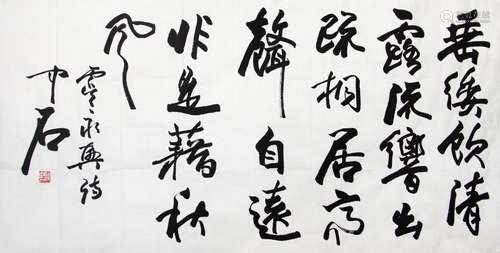 垂緌飲清
露流響出
疏桐居高
聲自遠
非是藉秋
風
虞永興詩
中石